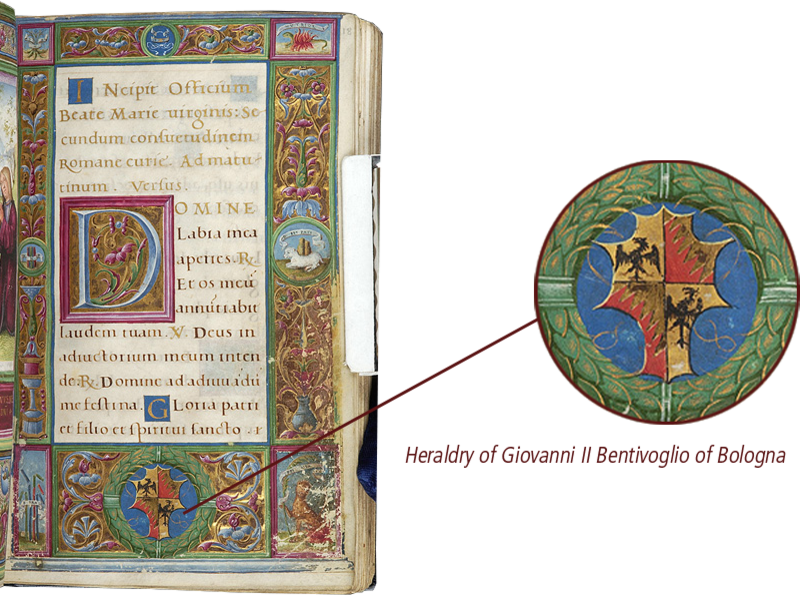 INcipit Officium
Beate Marie uirginis: Se
cundum consuetudinem
Romane curie. Ad matu-
tinum. Versus.
DOMINE
Labia mea
aperies. R.
Et os meū
annūtiabit
laudem tuam. V. Deus in
adiutorium meum inten
de. R. Domine ad adiuuādū
me festina. Gloria patri
et filio et spiritui sancto . s
Heraldry of Giovanni II Bentivoglio of Bologna